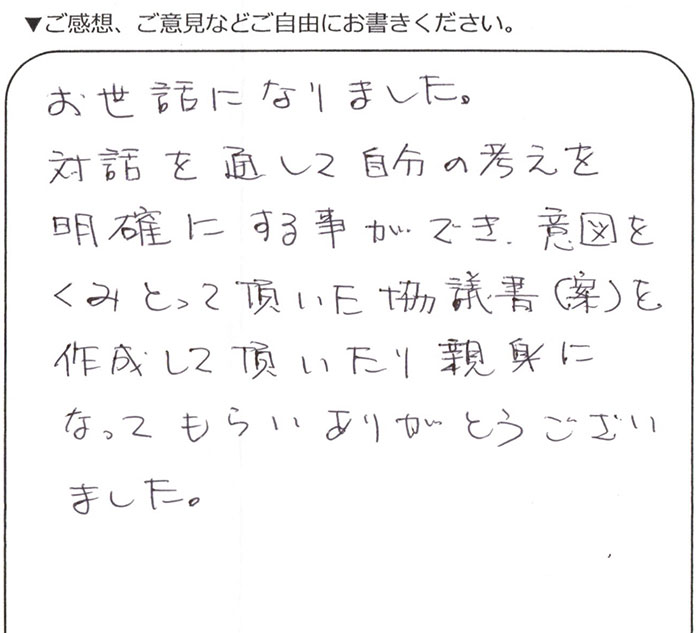 ▼ご感想、ご意見などご自由にお書きください。
お世話になりました。
対話を通して自分の考えを
明確にする事ができ、意図を
くみとって頂いた協議書(案)を
作成して頂いたり親身に
なってもらいありがとうござい
ました。